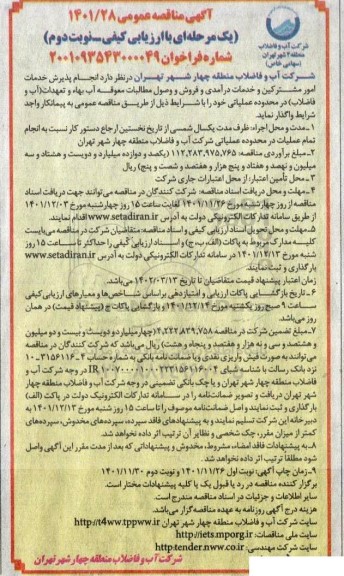 آگهی مناقصه عمومی ۱۴۰۱/۲۸
(یک مرحله‌ای با ارزیابی کیفی ـ نوبت دوم)
شماره فراخوان ۲۰۰۱۰۹۳۵۴۳۰۰۰۰۴۹
شرکت آب و فاضلاب
منطقه ۴ شهر تهران
(سهامی خاص)
شرکت آب و فاضلاب منطقه چهار شهر تهران در نظر دارد انجام پذیرش خدمات
امور مشترکین و خدمات درآمدی و فروش و وصول مطالبات معوقه آب بهاء و تعهدات (آب و
فاضلاب) در محدوده عملیاتی خود را با شرایط ذیل از طریق مناقصه عمومی به پیمانکار واجد
شرایط واگذار نماید.
۱ـ مدت و محل اجراء: ظرف مدت یکسال شمسی از تاریخ نخستین ارجاع دستور کار نسبت به انجام
تمام عملیات در محدوده عملیاتی شرکت آب و فاضلاب منطقه چهار شهر تهران
۲ـ مبلغ برآوردی مناقصه: ۱۱۲,۲۸۳,۹۷۵,۷۶۵ (یکصد و دوازده میلیارد و دویست و هشتاد و سه
میلیون و نهصد و هفتاد و پنج هزار و هفتصد و شصت و پنج) ریال
۳ـ محل تأمین اعتبار: از محل اعتبارات جاری شرکت
۴ـ مهلت و محل دریافت اسناد مناقصه: شرکت کنندگان در مناقصه می‌توانند جهت دریافت اسناد
مناقصه از روز چهارشنبه مورخ ۱۴۰۱/۱۱/۲۶ لغایت ساعت ۱۵ روز چهارشنبه مورخ ۱۴۰۱/۱۲/۰۳
از طریق سامانه تدارکات الکترونیکی دولت به آدرس www.setadiran.ir اقدام نمایند.
۵ـ مهلت و محل تحویل اسناد ارزیابی کیفی و اسناد مناقصه: متقاضیان شرکت در مناقصه می‌بایست
کلیه مدارک مربوط به پاکات (الف، ب، ج) و اسناد ارزیابی کیفی را حداکثر تا ساعت ۱۵ روز
شنبه مورخ ۱۴۰۱/۱۲/۱۳ در سامانه تدارکات الکترونیکی دولت به آدرس www.setadiran.ir
بارگذاری و ثبت نمایند.
زمان اعتبار پیشنهاد قیمت متقاضیان تا تاریخ ۱۴۰۲/۰۳/۱۳ می‌باشد.
۶ـ تاریخ بازگشایی پاکات ارزیابی و امتیازدهی براساس شاخص‌ها و معیارهای ارزیابی کیفی
ساعت ۹ صبح روز یکشنبه مورخ ۱۴۰۱/۱۲/۱۴ و بازگشایی پاکات ج (پیشنهاد قیمت) در همان
روز می‌باشد.
۷ـ مبلغ تضمین شرکت در مناقصه ۴,۲۲۲,۸۳۹,۷۵۸ (چهار میلیارد و دویست و بیست و دو میلیون
و هشتصد و سی و نه هزار و هفتصد و پنجاه و هشت) ریال می‌باشد که شرکت کنندگان در مناقصه
می‌توانند به صورت فیش واریزی نقدی و یا ضمانت نامه بانکی به شماره حساب
نزد بانک رسالت با شناسه شبای در وجه شرکت آب و
فاضلاب منطقه چهار شهر تهران و یا چک بانکی تضمینی در وجه شرکت آب و فاضلاب منطقه چهار
شهر تهران دریافت و تصویر ضمانت‌نامه را در سامانه تدارکات الکترونیک دولت در پاکت (الف)
بارگذاری و ثبت نمایند و اصل ضمانت‌نامه موصوف را تا ساعت ۱۵ روز شنبه مورخ ۱۴۰۱/۱۲/۱۳ به
دبیرخانه این شرکت تسلیم نمایند و به پیشنهادهای فاقد سپرده، سپرده‌های مخدوش، سپرده‌های
کمتر از میزان مقرر، چک شخصی و نظایر آن ترتیب اثر داده نخواهد شد.
۸ـ به پیشنهادات فاقد امضاء، مشروط، مخدوش و پیشنهاداتی که بعد از مدت مقرر این آگهی واصل
شود مطلقا ترتیب اثر داده نخواهد شد.
۹ـ زمان چاپ آگهی: نوبت اول ۱۴۰۱/۱۱/۲۶ و نوبت دوم ۱۴۰۱/۱۱/۳۰
برگزار کننده مناقصه در رد یا قبول یک یا کلیه پیشنهادات مختار است.
سایر اطلاعات و جزئیات در اسناد مناقصه مندرج است.
هزینه درج آگهی روزنامه به عهده مناقصه گزار می‌باشد.
سایت شرکت آب و فاضلاب منطقه چهار شهر تهران http://t4ww.tppww.ir
سایت ملی مناقصات: http://iets.mporg.ir
سایت شرکت مهندسی: http:tender.nww.co.ir
شرکت آب و فاضلاب منطقه چهار شهر تهران